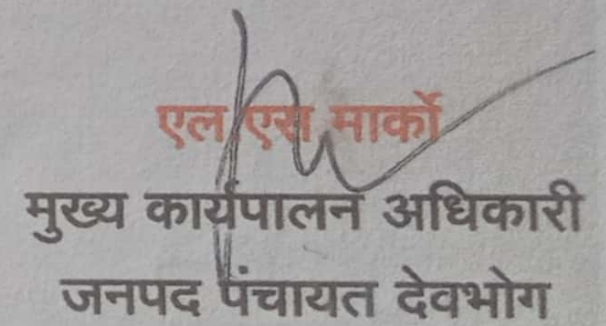 एल एस मार्को
मुख्य कार्यपालन अधिकारी
जनपद पंचायत देवभोग